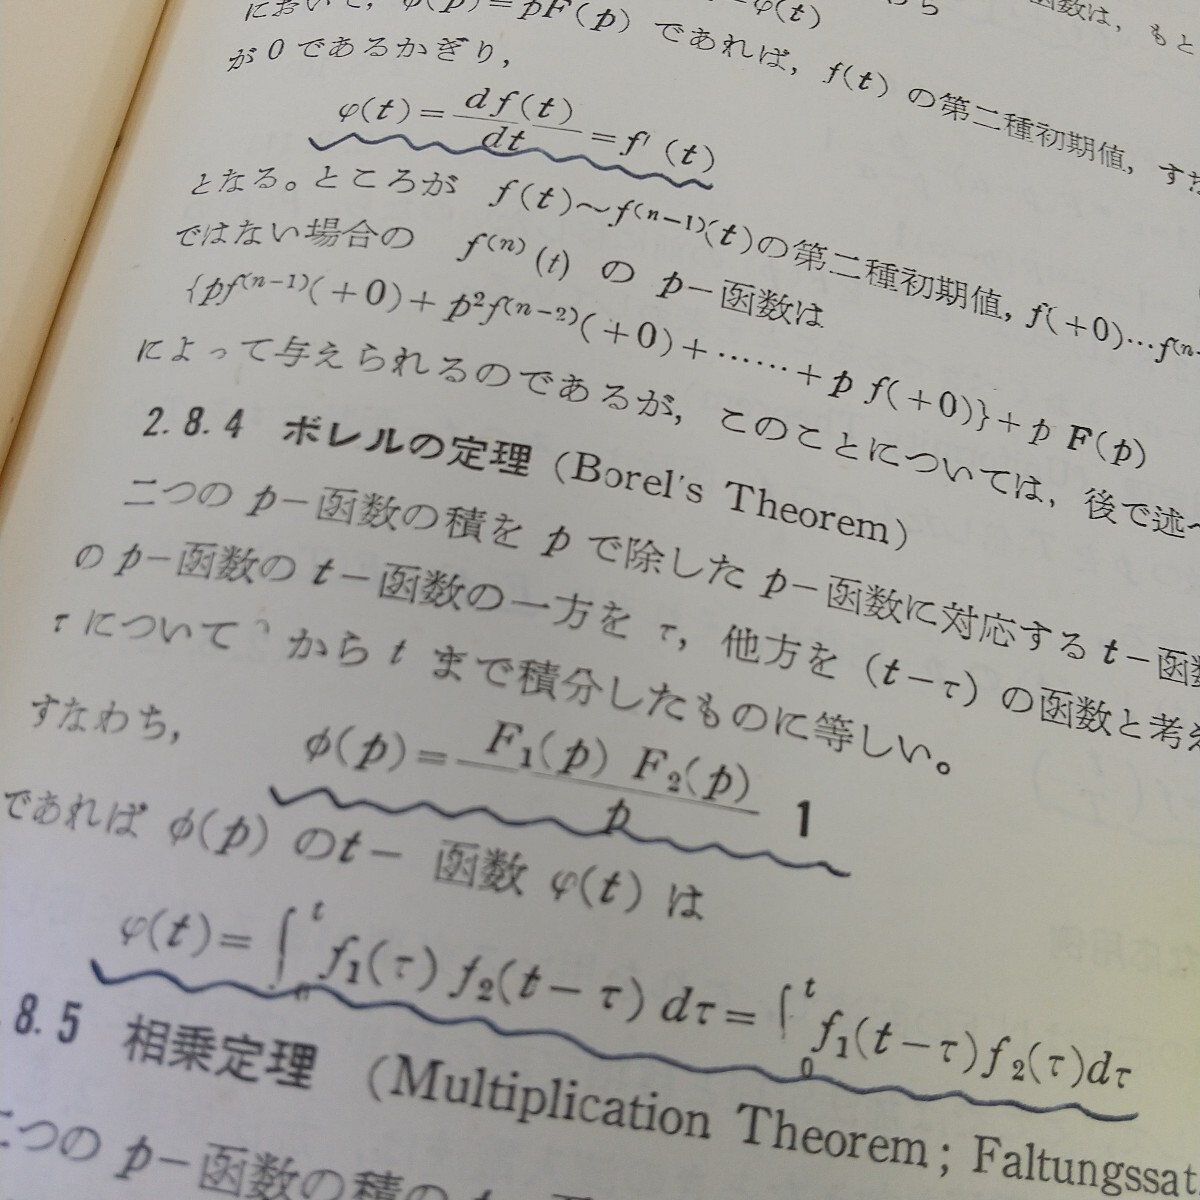 において, φ(p)=pF(p) であれば, f(t) の第二種初期値, すな
が0であるかぎり,
φ(t)=df(t)/dt=f'(t)
となる。ところが f(t)〜f⁽ⁿ⁻¹⁾(t)の第二種初期値, f(+0)…f⁽ⁿ⁻
ではない場合の f⁽ⁿ⁾(t) の p−函数は
{pf⁽ⁿ⁻¹⁾(+0)+p²f⁽ⁿ⁻²⁾(+0)+……+p f(+0)}+p F(p)
によって与えられるのであるが, このことについては, 後で述べ
2.8.4 ボレルの定理 (Borel's Theorem)
二つの p−函数の積を p で除した p−函数に対応する t−函数
の p−函数の t−函数の一方を τ, 他方を (t−τ) の函数と考え
τ について から t まで積分したものに等しい。
すなわち,
φ(p)=F₁(p) F₂(p)/p 1
であれば φ(p) のt− 函数 φ(t) は
φ(t)=∫₀ᵗ f₁(τ) f₂(t−τ) dτ=∫₀ᵗ f₁(t−τ)f₂(τ)dτ
.8.5 相乗定理 (Multiplication Theorem; Faltungssat
二つの p−函数の積の